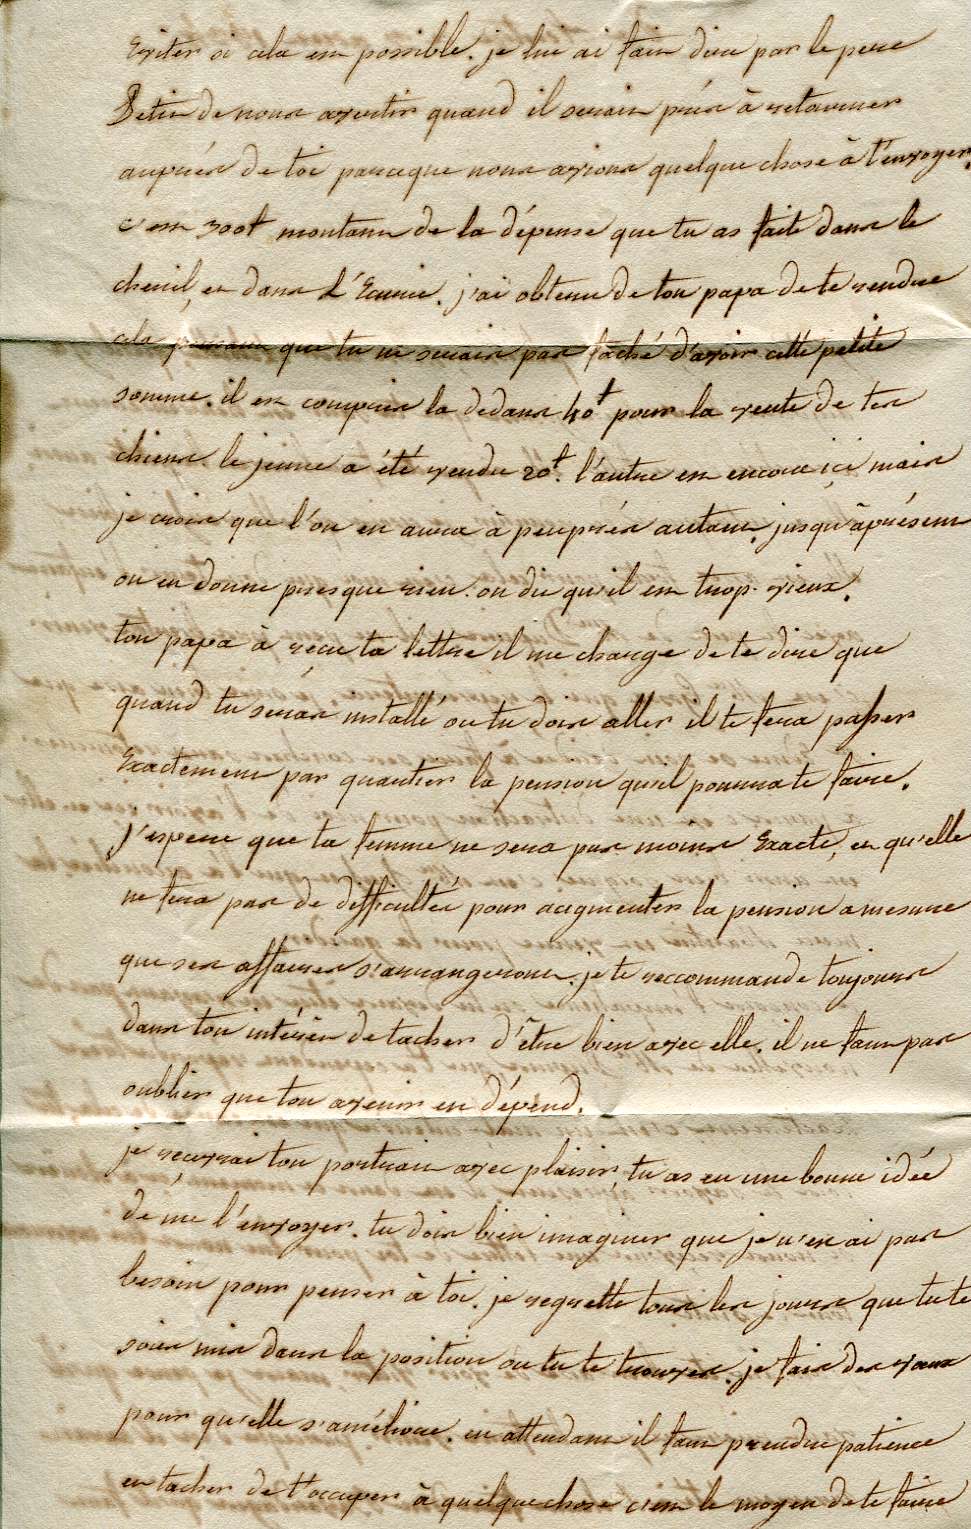 Eviter si cela est possible. je lui ai fait dire par le pere
Petit de nous avertir quand il serait près à retourner
auprès de toi parceque nous avions quelque chose à t'envoyer.
c'est 300ᵗ montant de la dépense que tu as faite dans le
chenil, et dans L'Ecurie. j'ai obtenu de ton papa de te rendre
cela pensant que tu ne serais pas faché d'avoir cette petite
somme. il est compris la dedans 40ᵗ pour la vente de tes
chiens. le jeune a été vendu 20ᵗ. l'autre est encore ici mais
je crois que l'on en aura à peuprés autant. jusqu'àprésent
on en donne presque rien. on dit qu'il est trop vieux.
ton papa à récu ta lettre il me charge de te dire que
quand tu seras installé ou tu dois aller il te fera passer
Exactement par quartier la pension qu'il pourra te faire.
j'espere que ta femme ne sera pas moins Exacte, et qu'elle
ne fera pas de difficultés pour augmenter la pension amesure
que ses affaires s'arrangeront. je te reccommande toujours
dans ton intérêt de tacher d'être bien avec elle. il ne faut pas
oublier que ton avenir en dépend.
je recevrai ton portrait avec plaisir, tu as eu une bonne idée
de me l'envoyer. tu dois bien imaginer que je n'en ai pas
besoin pour penser à toi. je regrette tous les jours que tu te
sois mis dans la position ou tu te trouves. je fais des vœux
pour qu'elle s'améliore. en attendant il faut prendre patience
et tacher de t'occuper à quelque chose c'est le moyen de te faire